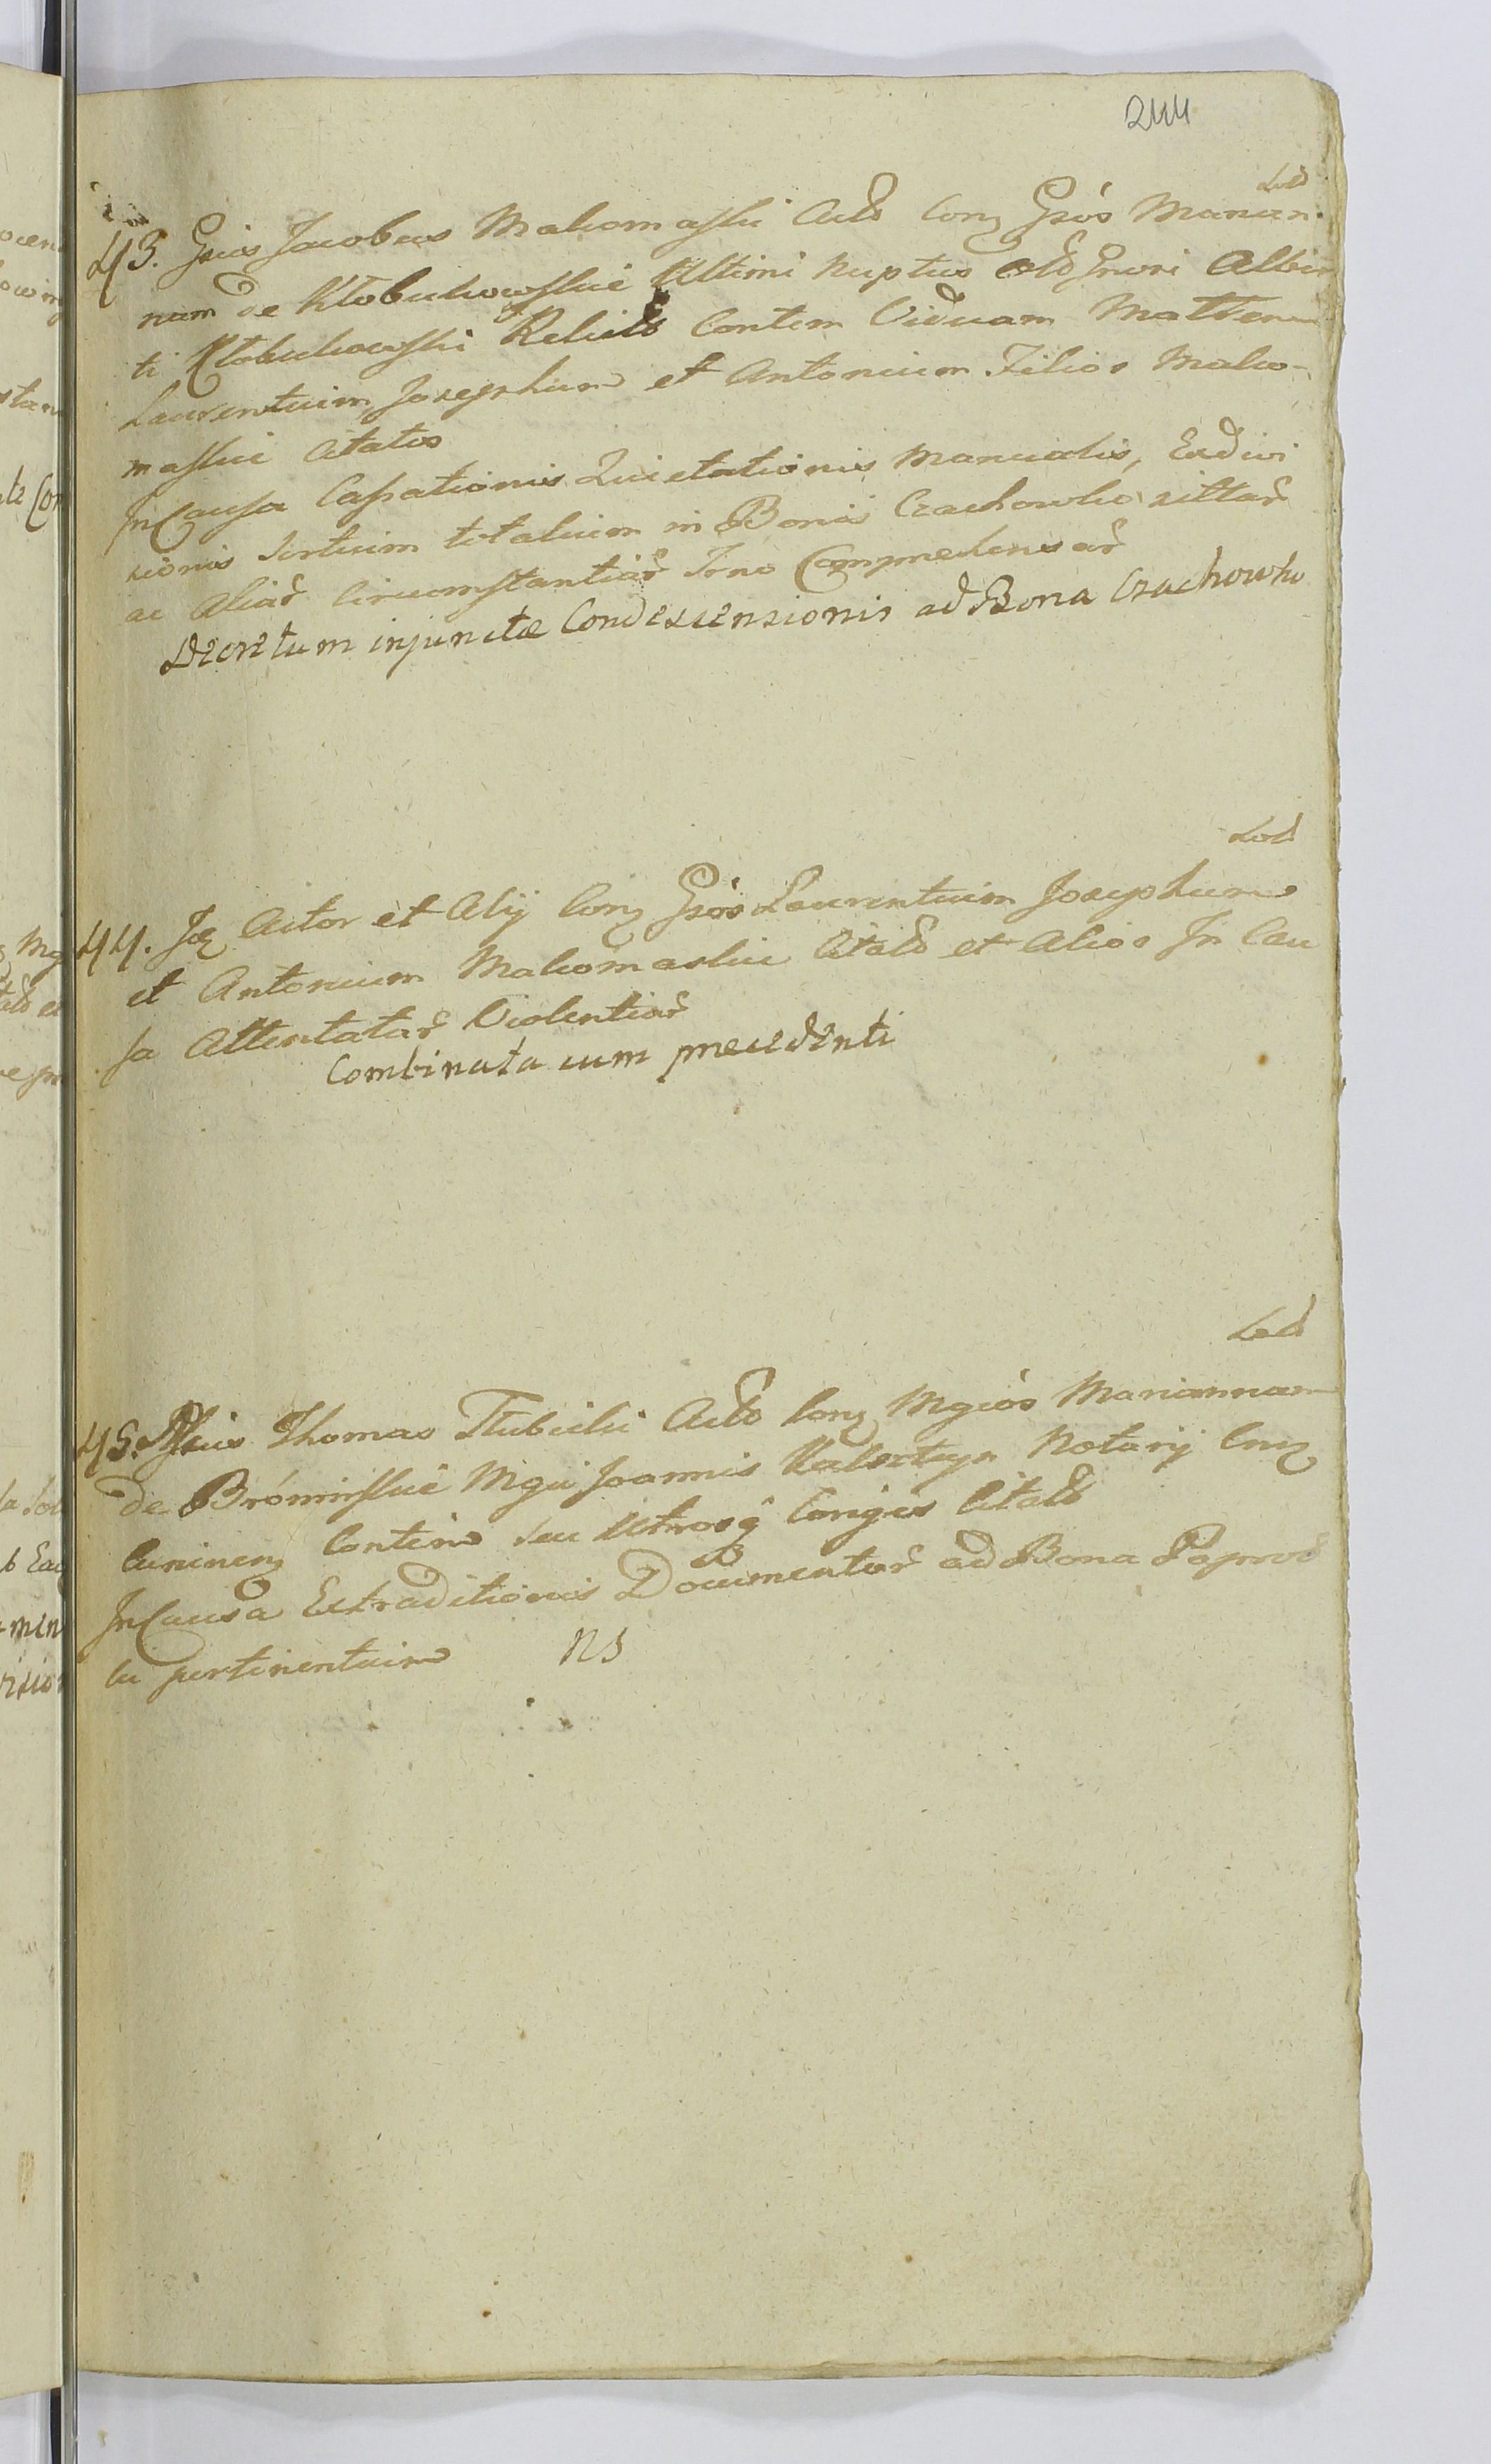 244
Lod
43. Gsus Jacobus Makomaski Actō Conz Gsōs Marian-
nam de Kłobukowskie Ultimi Nuptus olō Gnrosi Alber
ti Kłobukowski Relictō Contem Viduam Mattem
Laurentium Josephum et Antonium Filios Mako-
maskie Citatos
In Causa Cassationis Quietationis Manualis, Exdivi
sionis Sortium totalium in Bonis Czachowko sittar̄
ac Aliar̄ Circumstantiar̄ Trno Compraehensar̄
Decretum injunctæ Condescensionis ad Bona Czachowko
Lod
44. Jdz Actor et Alij Conz Gsōs Laurentium Josephum
et Antonium Makomaskie Citatō et Alios In Cau
sa Attentatar̄ Violentiar̄
Combinata cum precedenti
Lod
45. Thomas Tłubicki Actō Conz Mgcōs Mariannam
de Bromirskie Mgci Joannis Notarij
Contem seu Utrosq̄ Conjges Citatō
In Causa Extraditionis Documentor̄ ad Bona Paprod
ki pertinentium NS
ocen
stan
Con
Mg
min